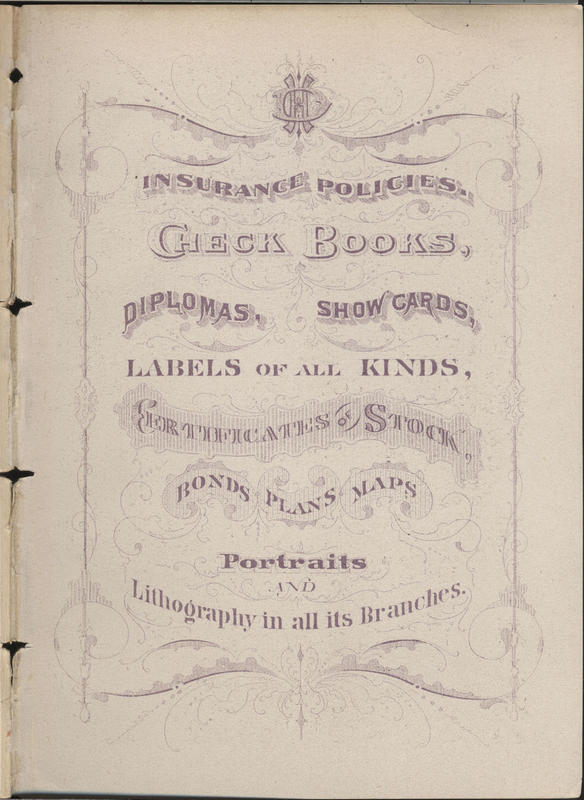 INSURANCE POLICIES,
CHECK BOOKS,
DIPLOMAS, SHOW CARDS,
LABELS OF ALL KINDS,
CERTIFICATES OF STOCK,
BONDS PLANS MAPS
Portraits
AND
Lithography in all its Branches.